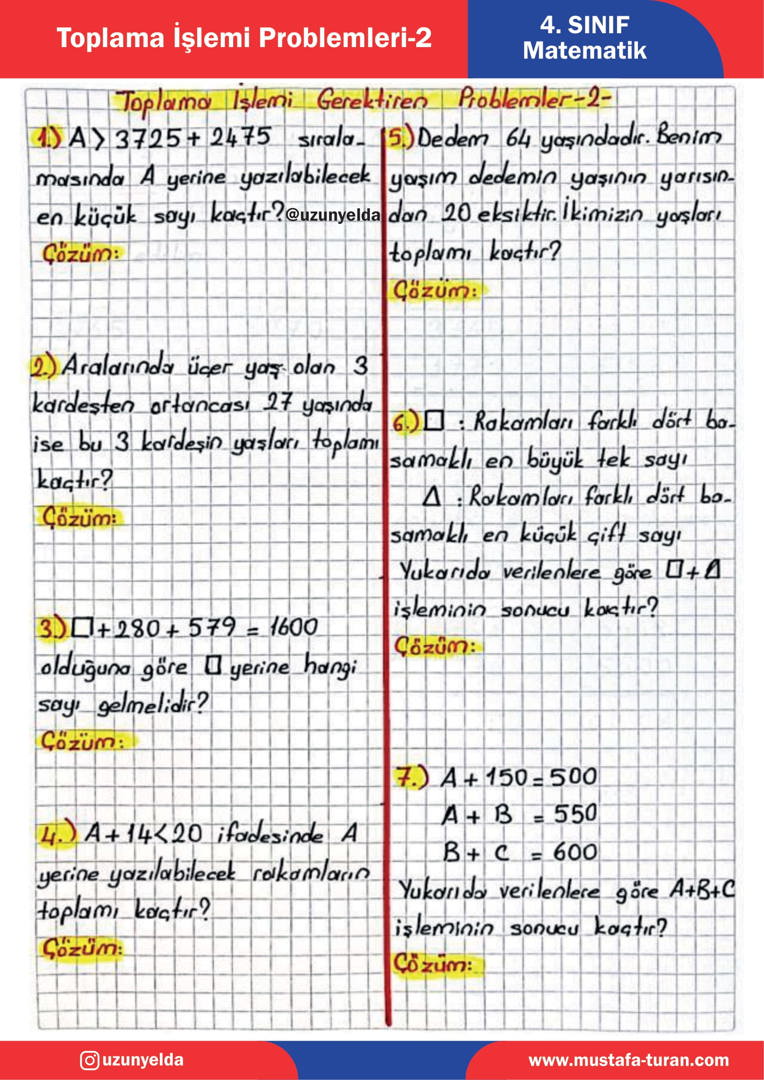 Toplama İşlemi Problemleri-2
4. SINIF
Matematik
Toplama İşlemi Gerektiren Problemler-2-
1.) A > 3725 + 2475 sırala-
masında A yerine yazılabilecek
en küçük sayı kaçtır?
@uzunyelda
Çözüm:
2.) Aralarında üçer yaş olan 3
kardeşten ortancası 27 yaşında
ise bu 3 kardeşin yaşları toplamı
kaçtır?
Çözüm:
3.) □ + 280 + 579 = 1600
olduğuna göre □ yerine hangi
sayı gelmelidir?
Çözüm:
4.) A + 14 < 20 ifadesinde A
yerine yazılabilecek rakamların
toplamı kaçtır?
Çözüm:
5.) Dedem 64 yaşındadır. Benim
yaşım dedemin yaşının yarısın-
dan 20 eksiktir. İkimizin yaşları
toplamı kaçtır?
Çözüm:
6.) □ : Rakamları farklı dört ba-
samaklı en büyük tek sayı
Δ : Rakamları farklı dört ba-
samaklı en küçük çift sayı
Yukarıda verilenlere göre □ + Δ
işleminin sonucu kaçtır?
Çözüm:
7.) A + 150 = 500
A + B = 550
B + C = 600
Yukarıda verilenlere göre A+B+C
işleminin sonucu kaçtır?
Çözüm:
uzunyelda
www.mustafa-turan.com